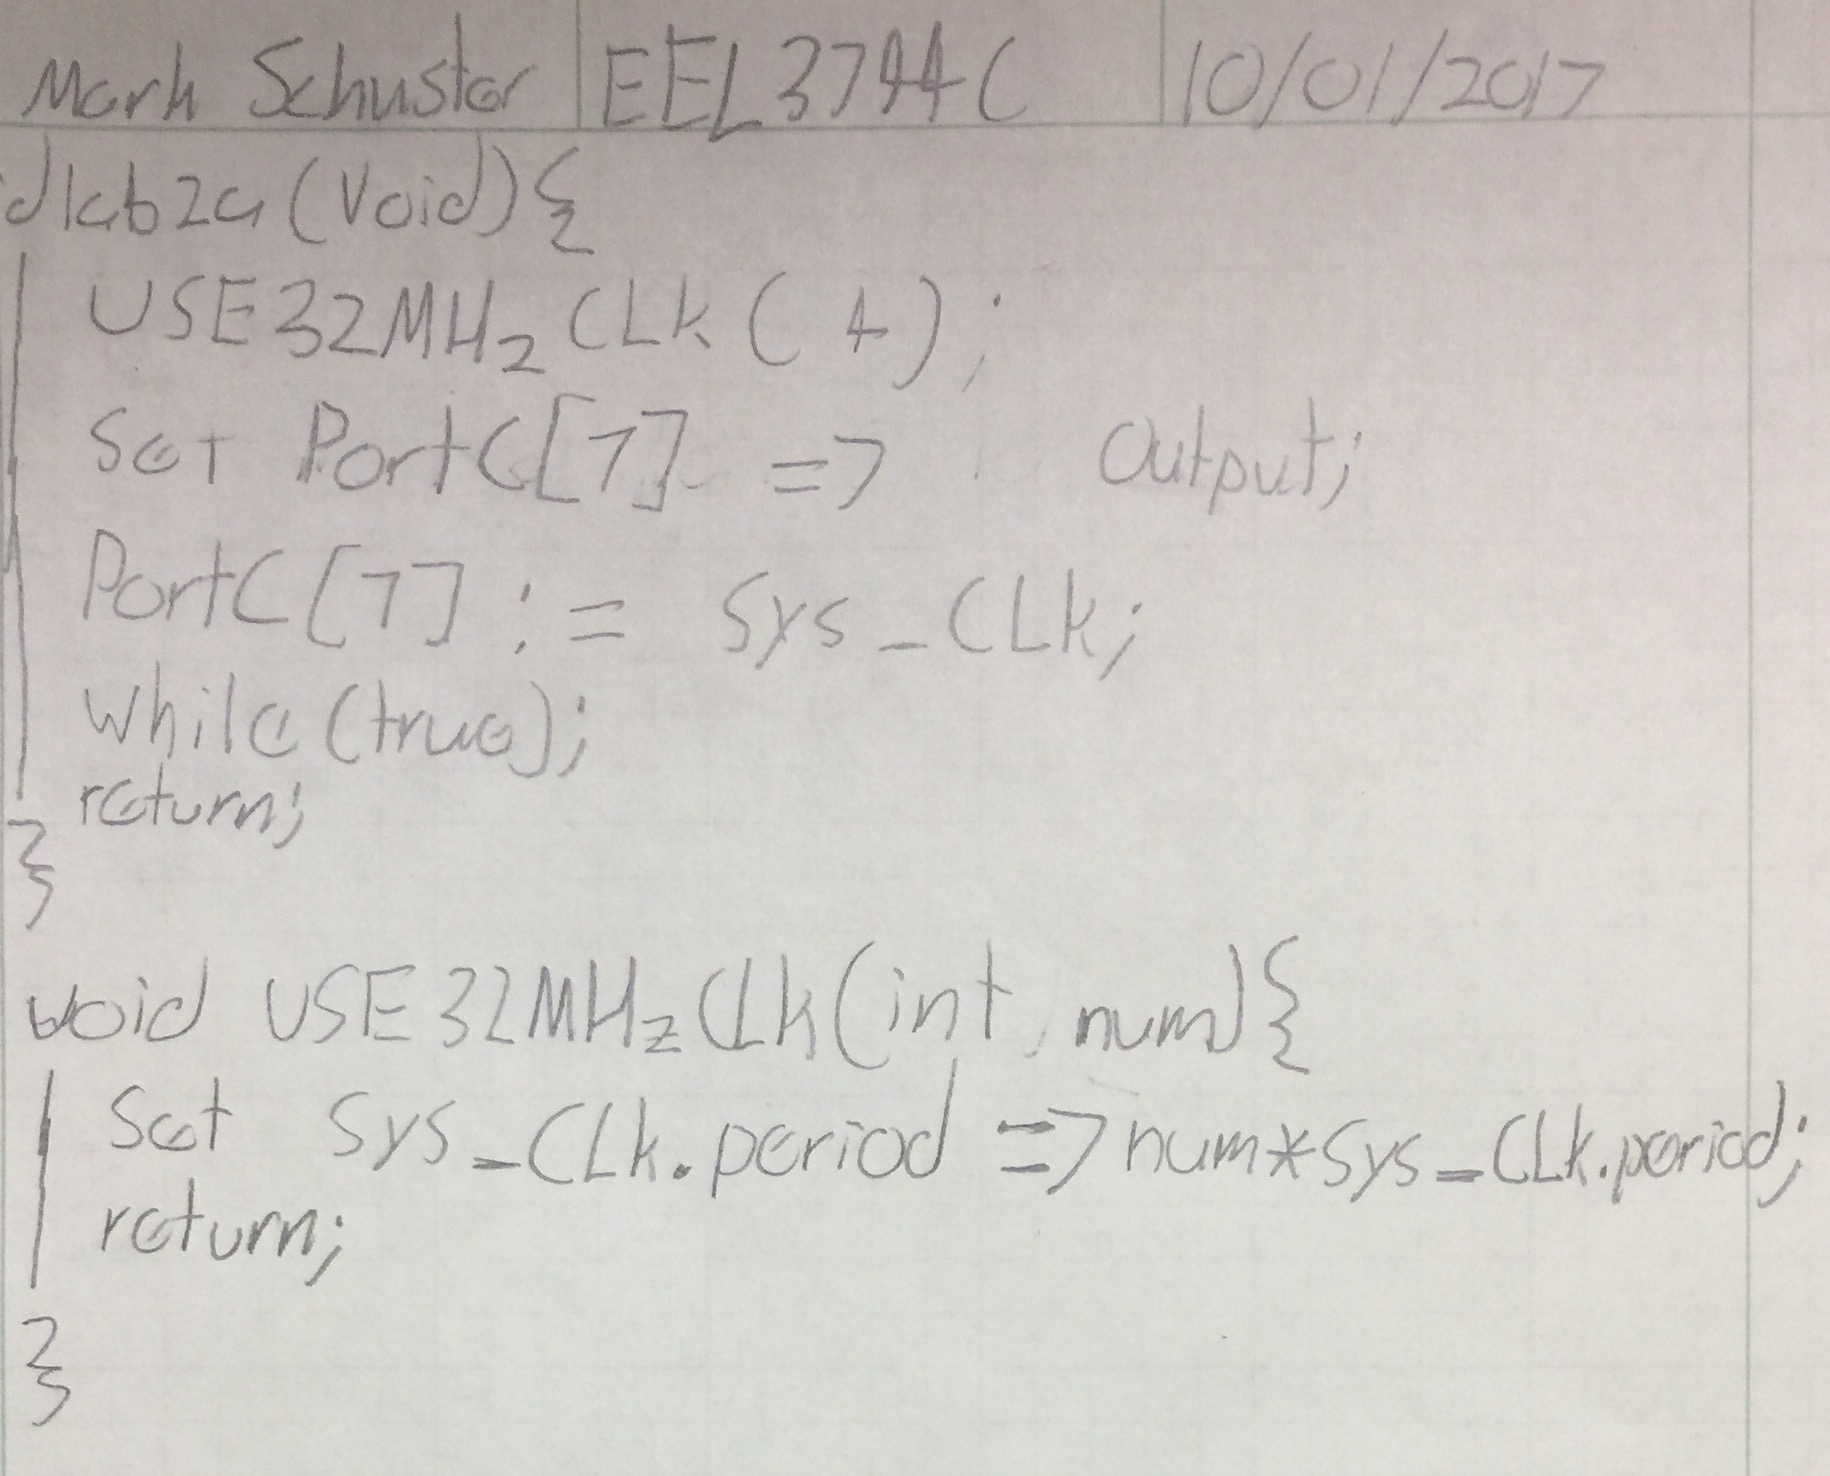 Mark Schuster EEL3744C 10/01/2017
id lab2a (Void) {
USE32MHz CLK ( 4 ) ;
Set PortC[7] => Output;
PortC[7] := Sys_CLK;
while (true);
return;
}
void USE32MHzCLK(int num) {
Set Sys_CLK.period => num*Sys_CLK.period;
return;
}